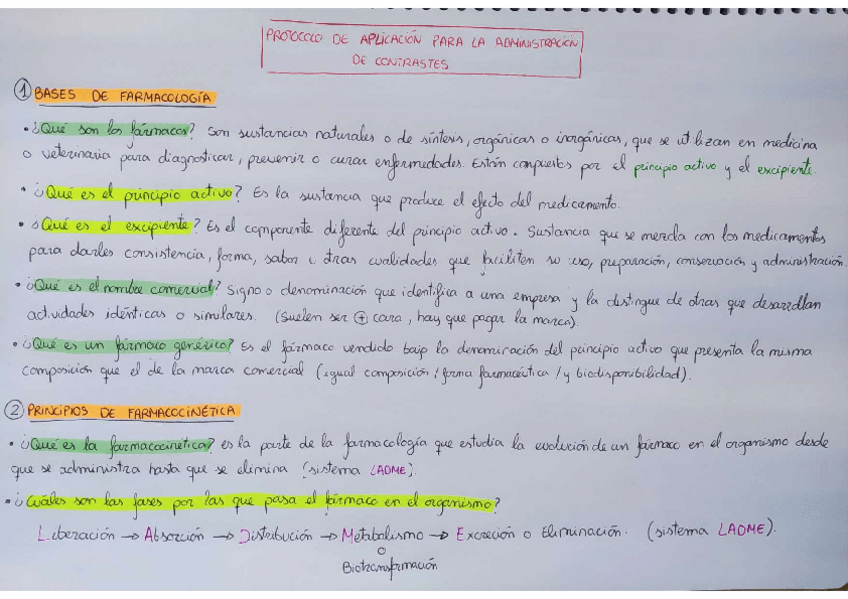 PROTOCOLO DE APLICACIÓN PARA LA ADMINISTRACIÓN
DE CONTRASTES
1 BASES DE FARMACOLOGÍA
• ¿Qué son los fármacos? Son sustancias naturales o de síntesis, orgánicas o inorgánicas, que se utilizan en medicina
o veterinaria para diagnosticar, prevenir o curar enfermedades. Están compuestos por el principio activo y el excipiente.
• ¿Qué es el principio activo? Es la sustancia que produce el efecto del medicamento.
• ¿Qué es el excipiente? Es el componente diferente del principio activo. Sustancia que se mezcla con los medicamentos
para darles consistencia, forma, sabor u otras cualidades que faciliten su uso, preparación, conservación y administración.
• ¿Qué es el nombre comercial? Signo o denominación que identifica a una empresa y la distingue de otras que desarrollan
actividades idénticas o similares. (Suelen ser ⊕ cara, hay que pagar la marca).
• ¿Qué es un fármaco genérico? Es el fármaco vendido bajo la denominación del principio activo que presenta la misma
composición que el de la marca comercial (igual composición / forma farmacéutica / y biodisponibilidad).
2 PRINCIPIOS DE FARMACOCINÉTICA
• ¿Qué es la farmacocinética? es la parte de la farmacología que estudia la evolución de un fármaco en el organismo desde
que se administra hasta que se elimina (sistema LADME).
• ¿Cuáles son las fases por las que pasa el fármaco en el organismo?
Liberación → Absorción → Distribución → Metabolismo → Excreción o Eliminación. (sistema LADME).
o
Biotransformación